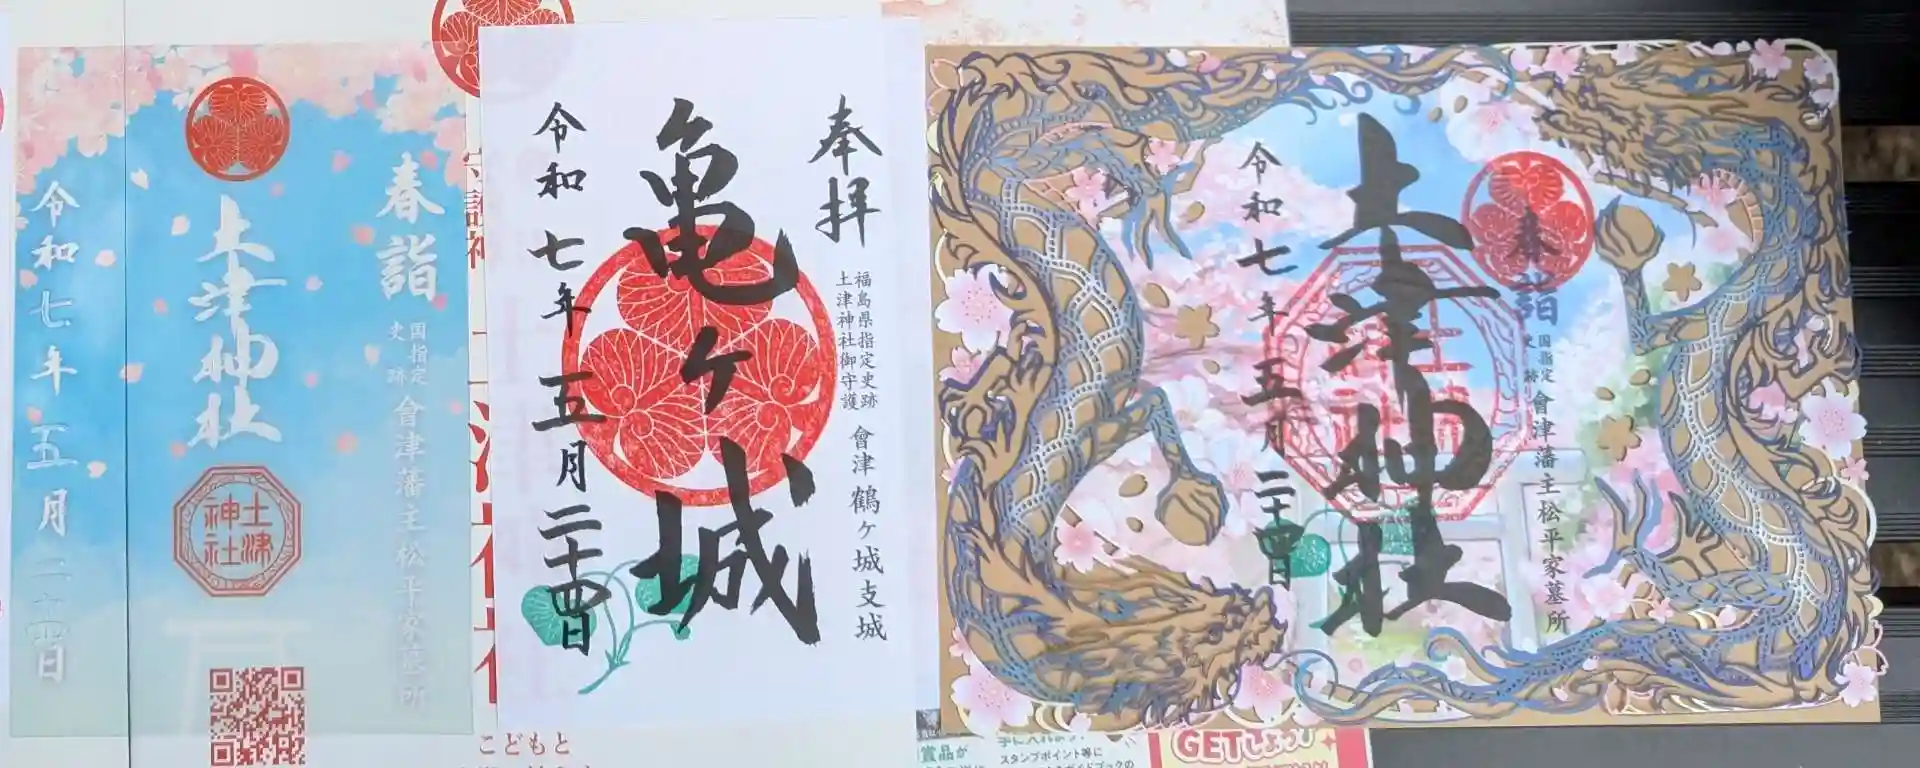 春詣
国指定
史跡
會津藩主松平家墓所
土津神社
土津
神社
令和七年
五月
二十四日
守護神
こどもと
奉拝
福島県指定史跡
土津神社御守護
會津鶴ヶ城支城
亀ヶ城
令和七年五月二十四日
春詣
国指定
史跡
會津藩主松平家墓所
土津神社
土津
神社
令和七年五月二十四日
賞品が
スタンプポイント等に
GETしよう